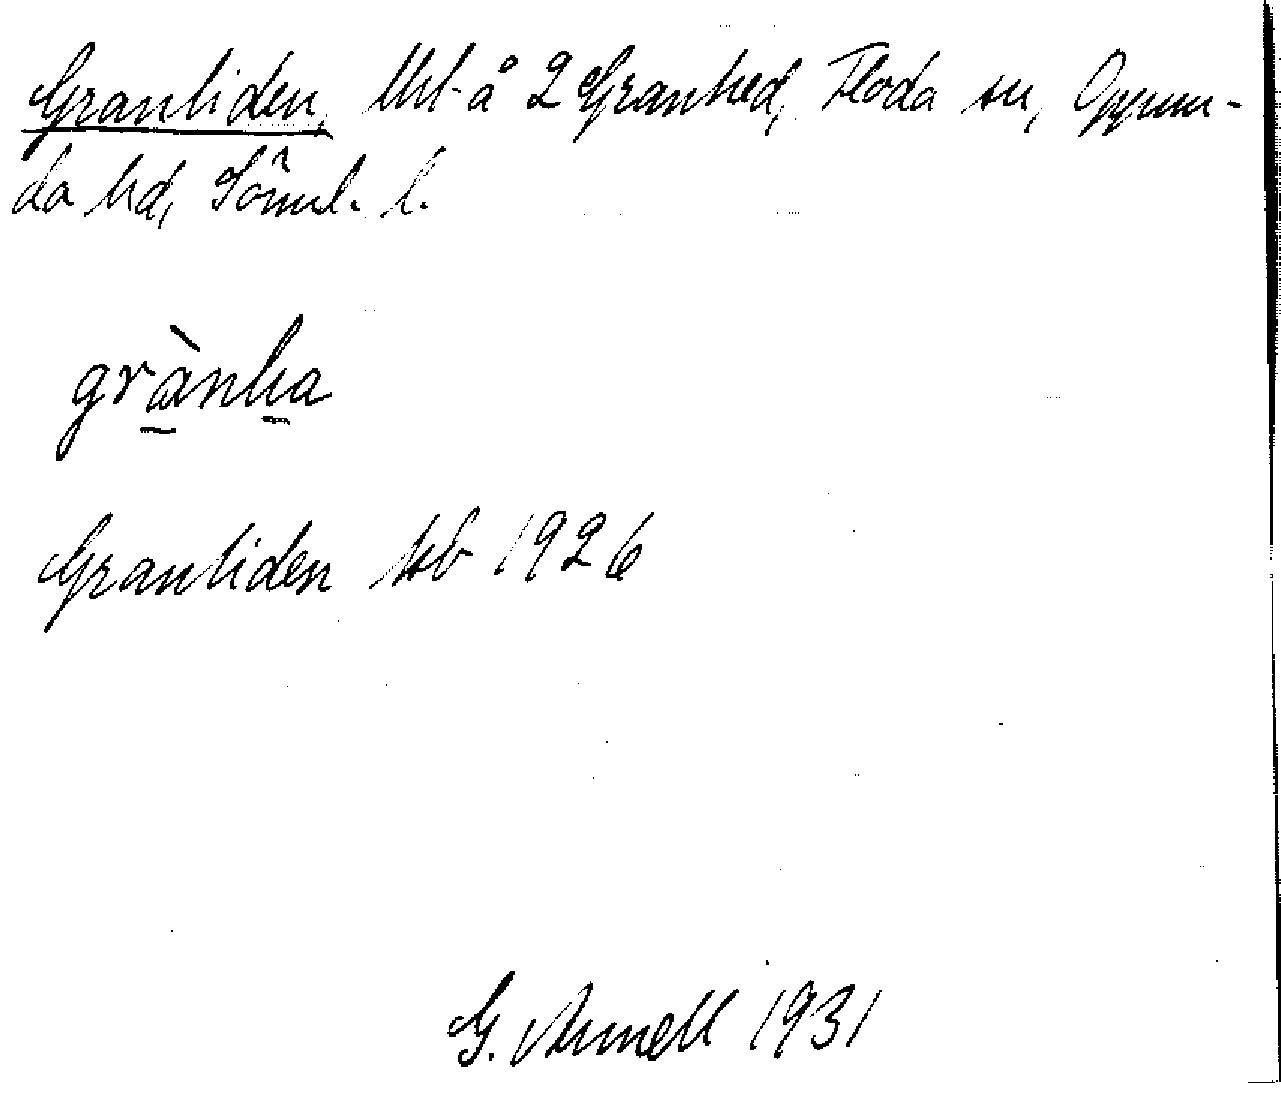 Granliden, Uhl å 2 Granhed, Floda sn, Oppun-
da hd, Söml. l.
grànha
Granliden kb 1926
G. Arnell 1931